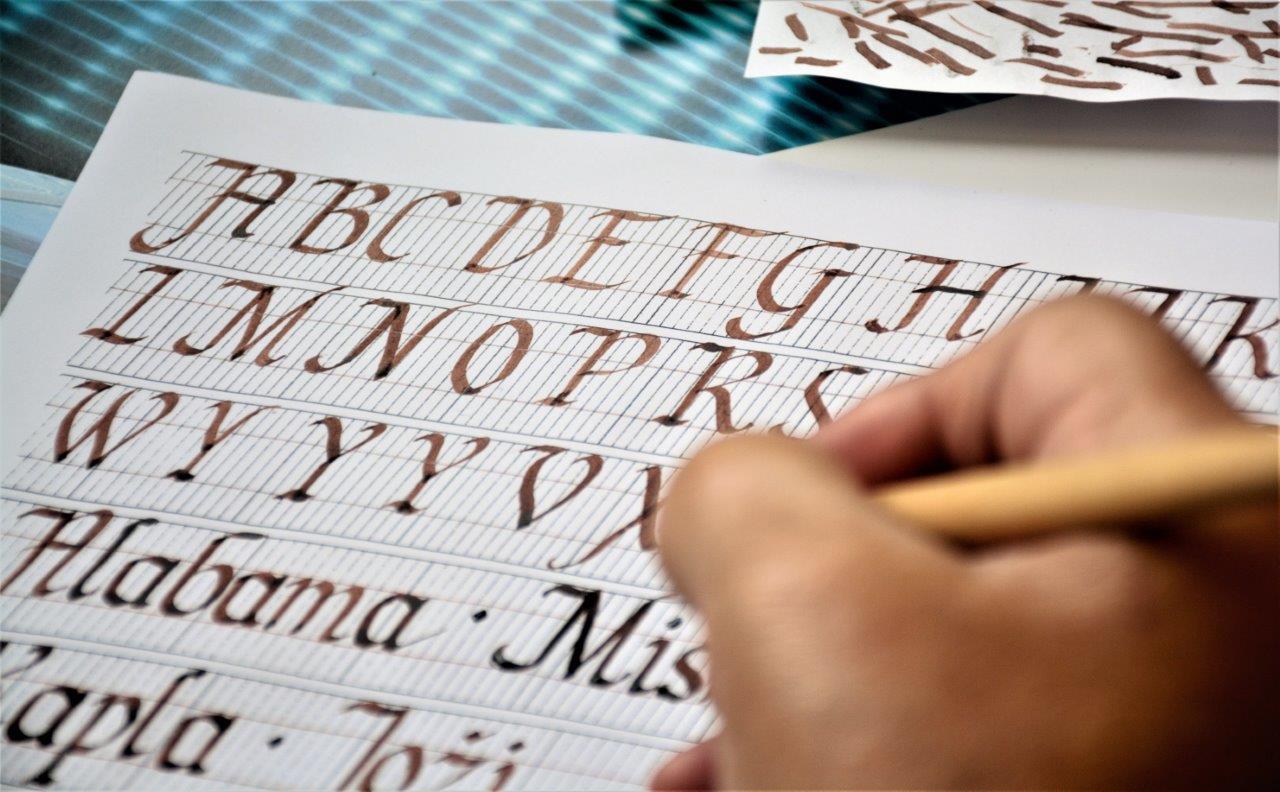 A B C D E F G H I J K
L M N O P R S
W Y Y Y V X
Alabama · Mis
Joži